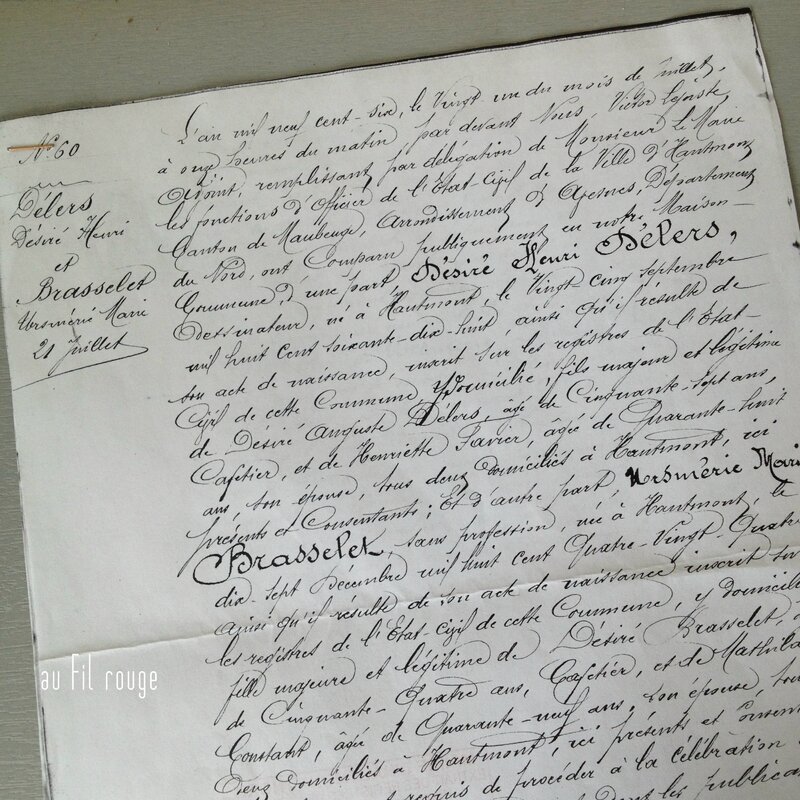 N° 60
Délers
Désiré Henri
et
Brasselet
Ursmérie Marie
21 Juillet
L'an mil neuf cent-six, le Vingt un du mois de Juillet,
à onze heures du matin par devant Nous, Victor
Adjoint, remplissant par délégation de Monsieur le Maire
les fonctions d'Officier de l'Etat-Civil de la Ville d'Hautmont
Canton de Maubeuge, Arrondissement d'Avesnes, Département
du Nord, ont Comparu publiquement en notre Maison-
Commune d'une part, Désiré Henri Délers,
Dessinateur, né à Hautmont, le Vingt cinq Septembre
mil huit Cent soixante-dix-huit, ainsi qu'il résulte de
son acte de naissance, inscrit sur les registres de l'Etat-
Civil de cette Commune, y domicilié, fils majeur et légitime
de Désiré Auguste Délers, âgé de Cinquante-sept ans,
Cafetier, et de Henriette Favier, âgée de Quarante-huit
ans, son épouse, tous deux domiciliés à Hautmont, ici
présents et Consentants; Et d'autre part, Ursmérie Mari
Brasselet, sans profession, née à Hautmont, le
dix-sept Décembre mil huit cent Quatre-Vingt-Quatre
ainsi qu'il résulte de son acte de naissance inscrit sur
les registres de l'Etat-Civil de cette Commune, y domicili
fille majeure et légitime de Désiré Brasselet,
de Cinquante-Quatre ans, Cafetier, et de Mathild
Constant, âgée de Quarante-neuf ans, son épouse, tou
deux domiciliés à Hautmont, ici présents et Consen
requis de procéder à la célébration
dont les publica
au Fil rouge